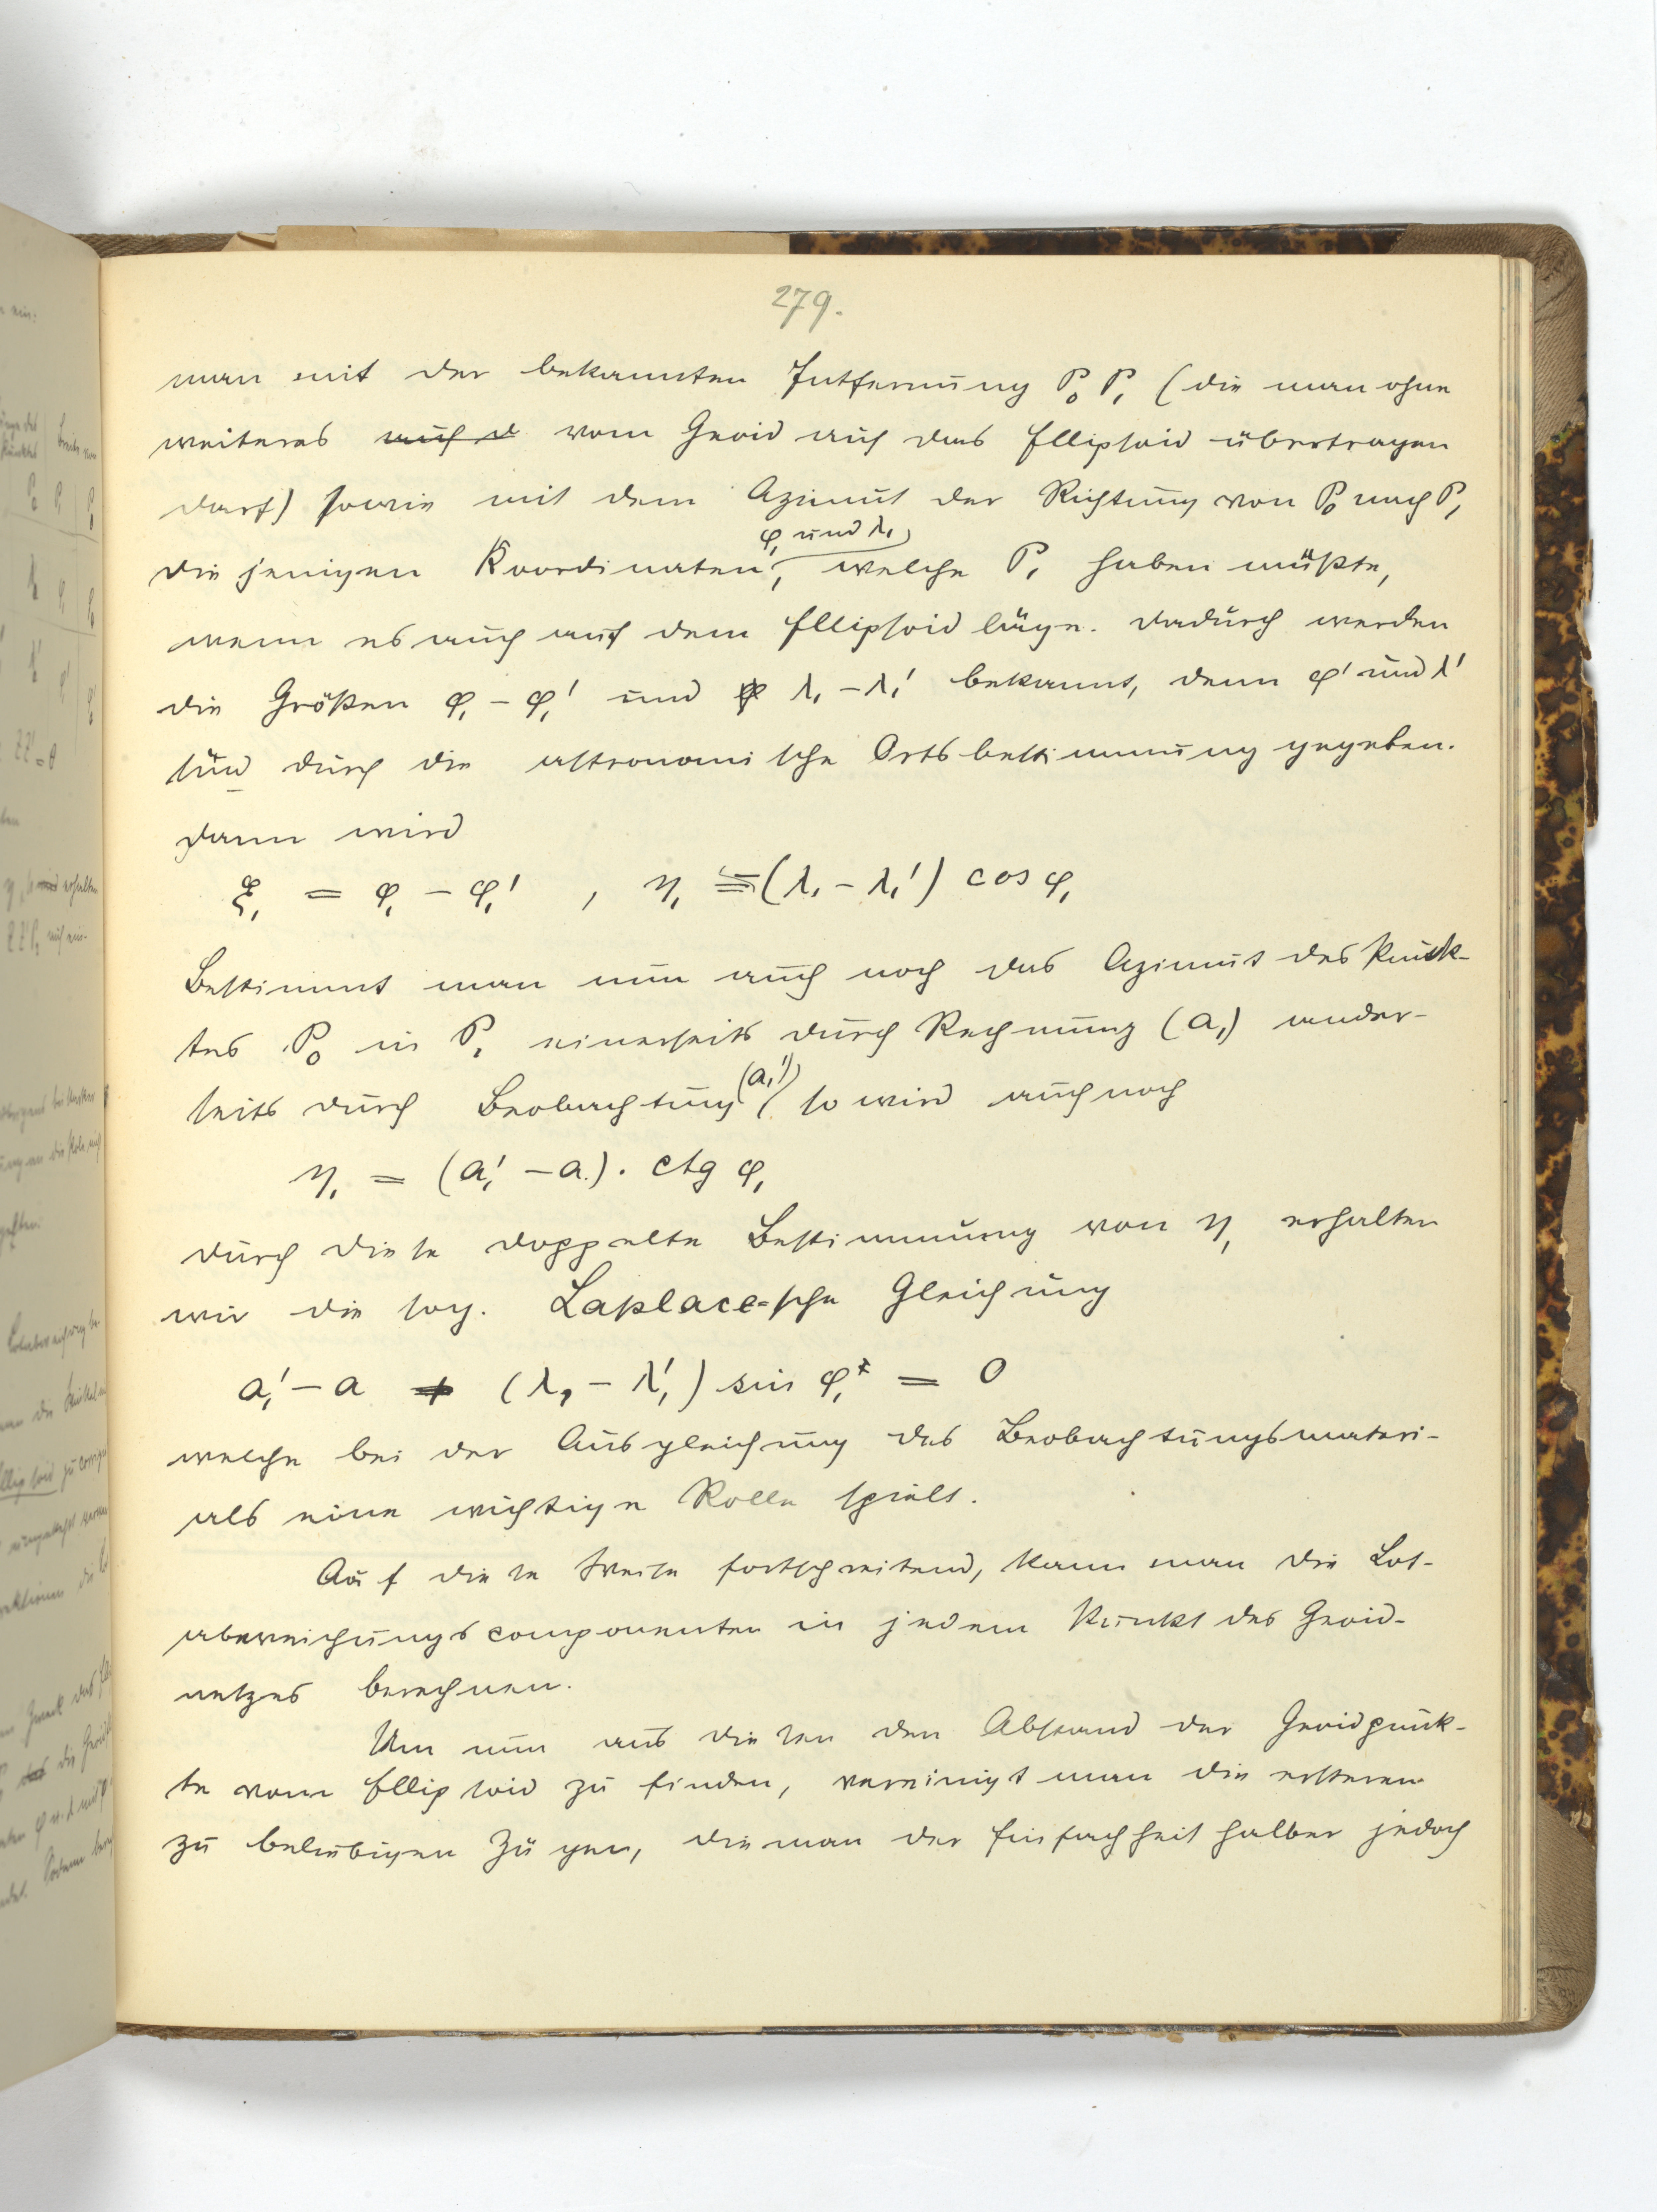 279.
man mit der bekannten Entfernung P₀ P₁ (die man ohne
weiteres auf d vom Geoid auf das Ellipsoid übertragen
darf) sowie mit dem Azimut der Richtung von P₀ nach P₁
φ₁ und λ₁
diejenigen Koordinaten, welche P₁ haben müßte,
wenn es auch auf dem Ellipsoid läge. Dadurch werden
die Größen φ₁ - φ₁' und φ λ₁ - λ₁' bekannt, denn φ' und λ'
sind durch die astronomische Ortsbestimmung gegeben.
Dann wird
ξ₁ = φ₁ - φ₁' , η₁ = (λ₁ - λ₁') cos φ₁
Bestimmt man nun auch noch das Azimut des Punk-
tes P₀ in P₁ einerseits durch Rechnung (a₁) ander-
seits durch Beobachtung (a₁') so wird auch noch
η₁ = (a₁' - a₁) . ctg φ₁
durch diese doppelte Bestimmung von η₁ erhalten
wir die sog. Laplace=sche Gleichung
a₁' - a + (λ₁ - λ₁') sin φ₁ = 0
welche bei der Ausgleichung des Beobachtungsmateri-
als eine wichtige Rolle spielt.
Auf diese Weise fortschreitend, kann man die Lot-
abweichungscomponenten in jedem Punkt des Geoid-
netzes berechnen.
Um nun aus diesen den Abstand der Geoidpunk-
te vom Ellipsoid zu finden, vereinigt man die ersteren
zu beliebigen Zügen, die man der Einfachheit halber jedoch